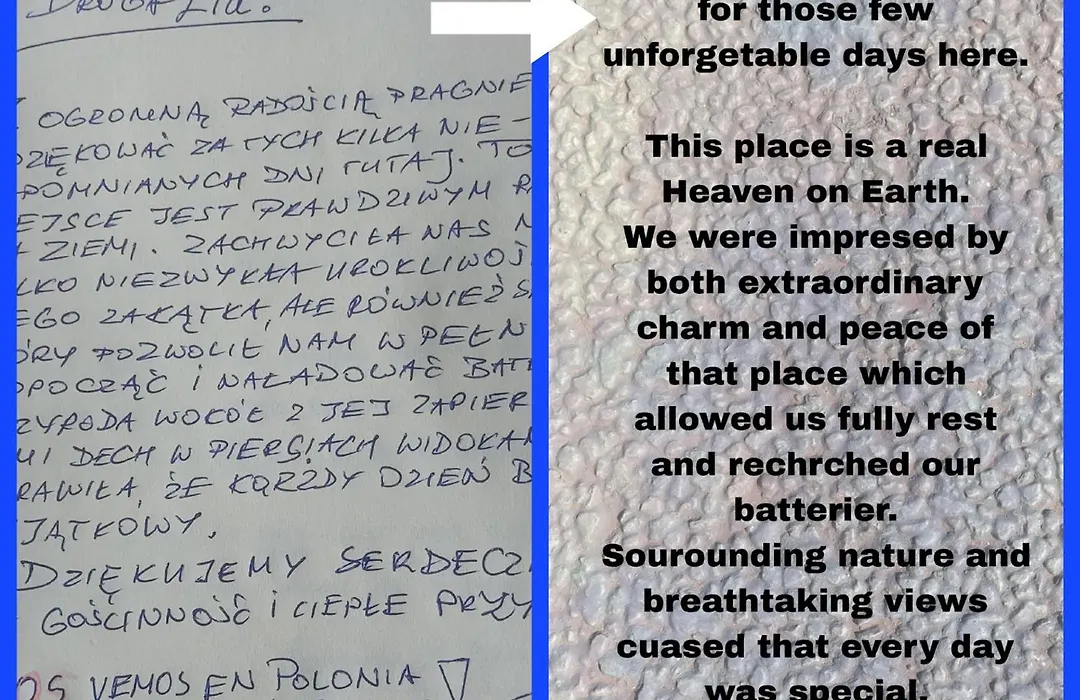 DROGA
OGROMNĄ RADOŚCIĄ PRAGNIE
DZIĘKOWAĆ ZA TYCH KILKA NIE-
POMNIANYCH DNI TUTAJ. TO
EJSCE JEST PRAWDZIWYM R
ZIEMI. ZACHWYCIŁA NAS N
LKO NIEZWYKŁA UROKLIWOŚ
EGO ZAKĄTKA, ALE RÓWNIEŻ S
ÓRY POZWOLIŁ NAM W PEŁN
OPOCZĄĆ I NAŁADOWAĆ BAT
ZYRODA WOKÓŁ Z JEJ ZAPIER
MI DECH W PIERSIACH WIDOKA
RAWIŁA, ŻE KĄŻDY DZIEŃ B
JĄTKOWY.
DZIĘKUJEMY SERDECZ
GOŚCINNOŚĆ i CIEPŁE PRZY
OS VEMOS EN POLONIA
for those few
unforgetable days here.
This place is a real
Heaven on Earth.
We were impresed by
both extraordinary
charm and peace of
that place which
allowed us fully rest
and rechrched our
batterier.
Sourounding nature and
breathtaking views
cuased that every day
was special.